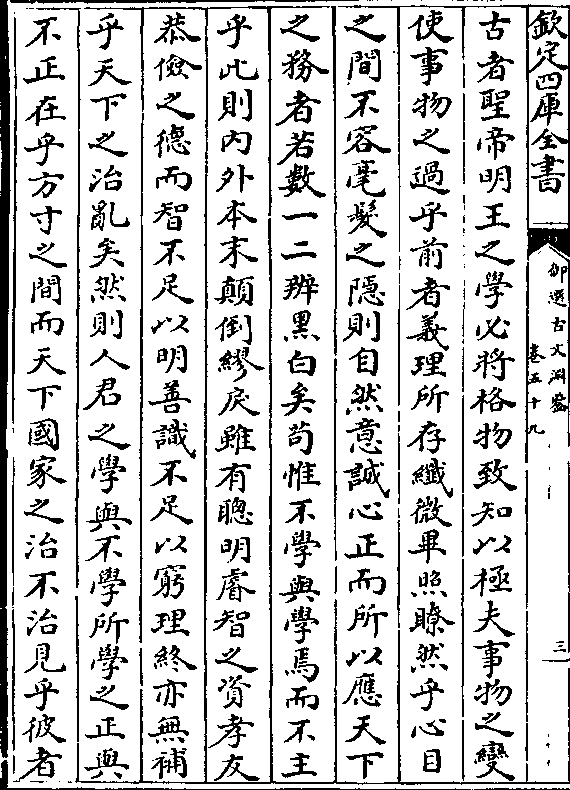 欽定四庫全書
御選古文淵鑒
卷五十九
三
古者聖帝明王之學必將格物致知以極夫事物之變
使事物之過乎前者義理所存纖微畢照瞭然乎心目
之間不容毫髮之隱則自然意誠心正而所以應天下
之務者若數一二辨黑白矣苟惟不學與學焉而不主
乎此則內外本末顛倒繆戾雖有聰明睿智之資孝友
恭儉之德而智不足以明善識不足以窮理終亦無補
乎天下之治亂矣然則人君之學與不學所學之正與
不正在乎方寸之間而天下國家之治不治見乎彼者